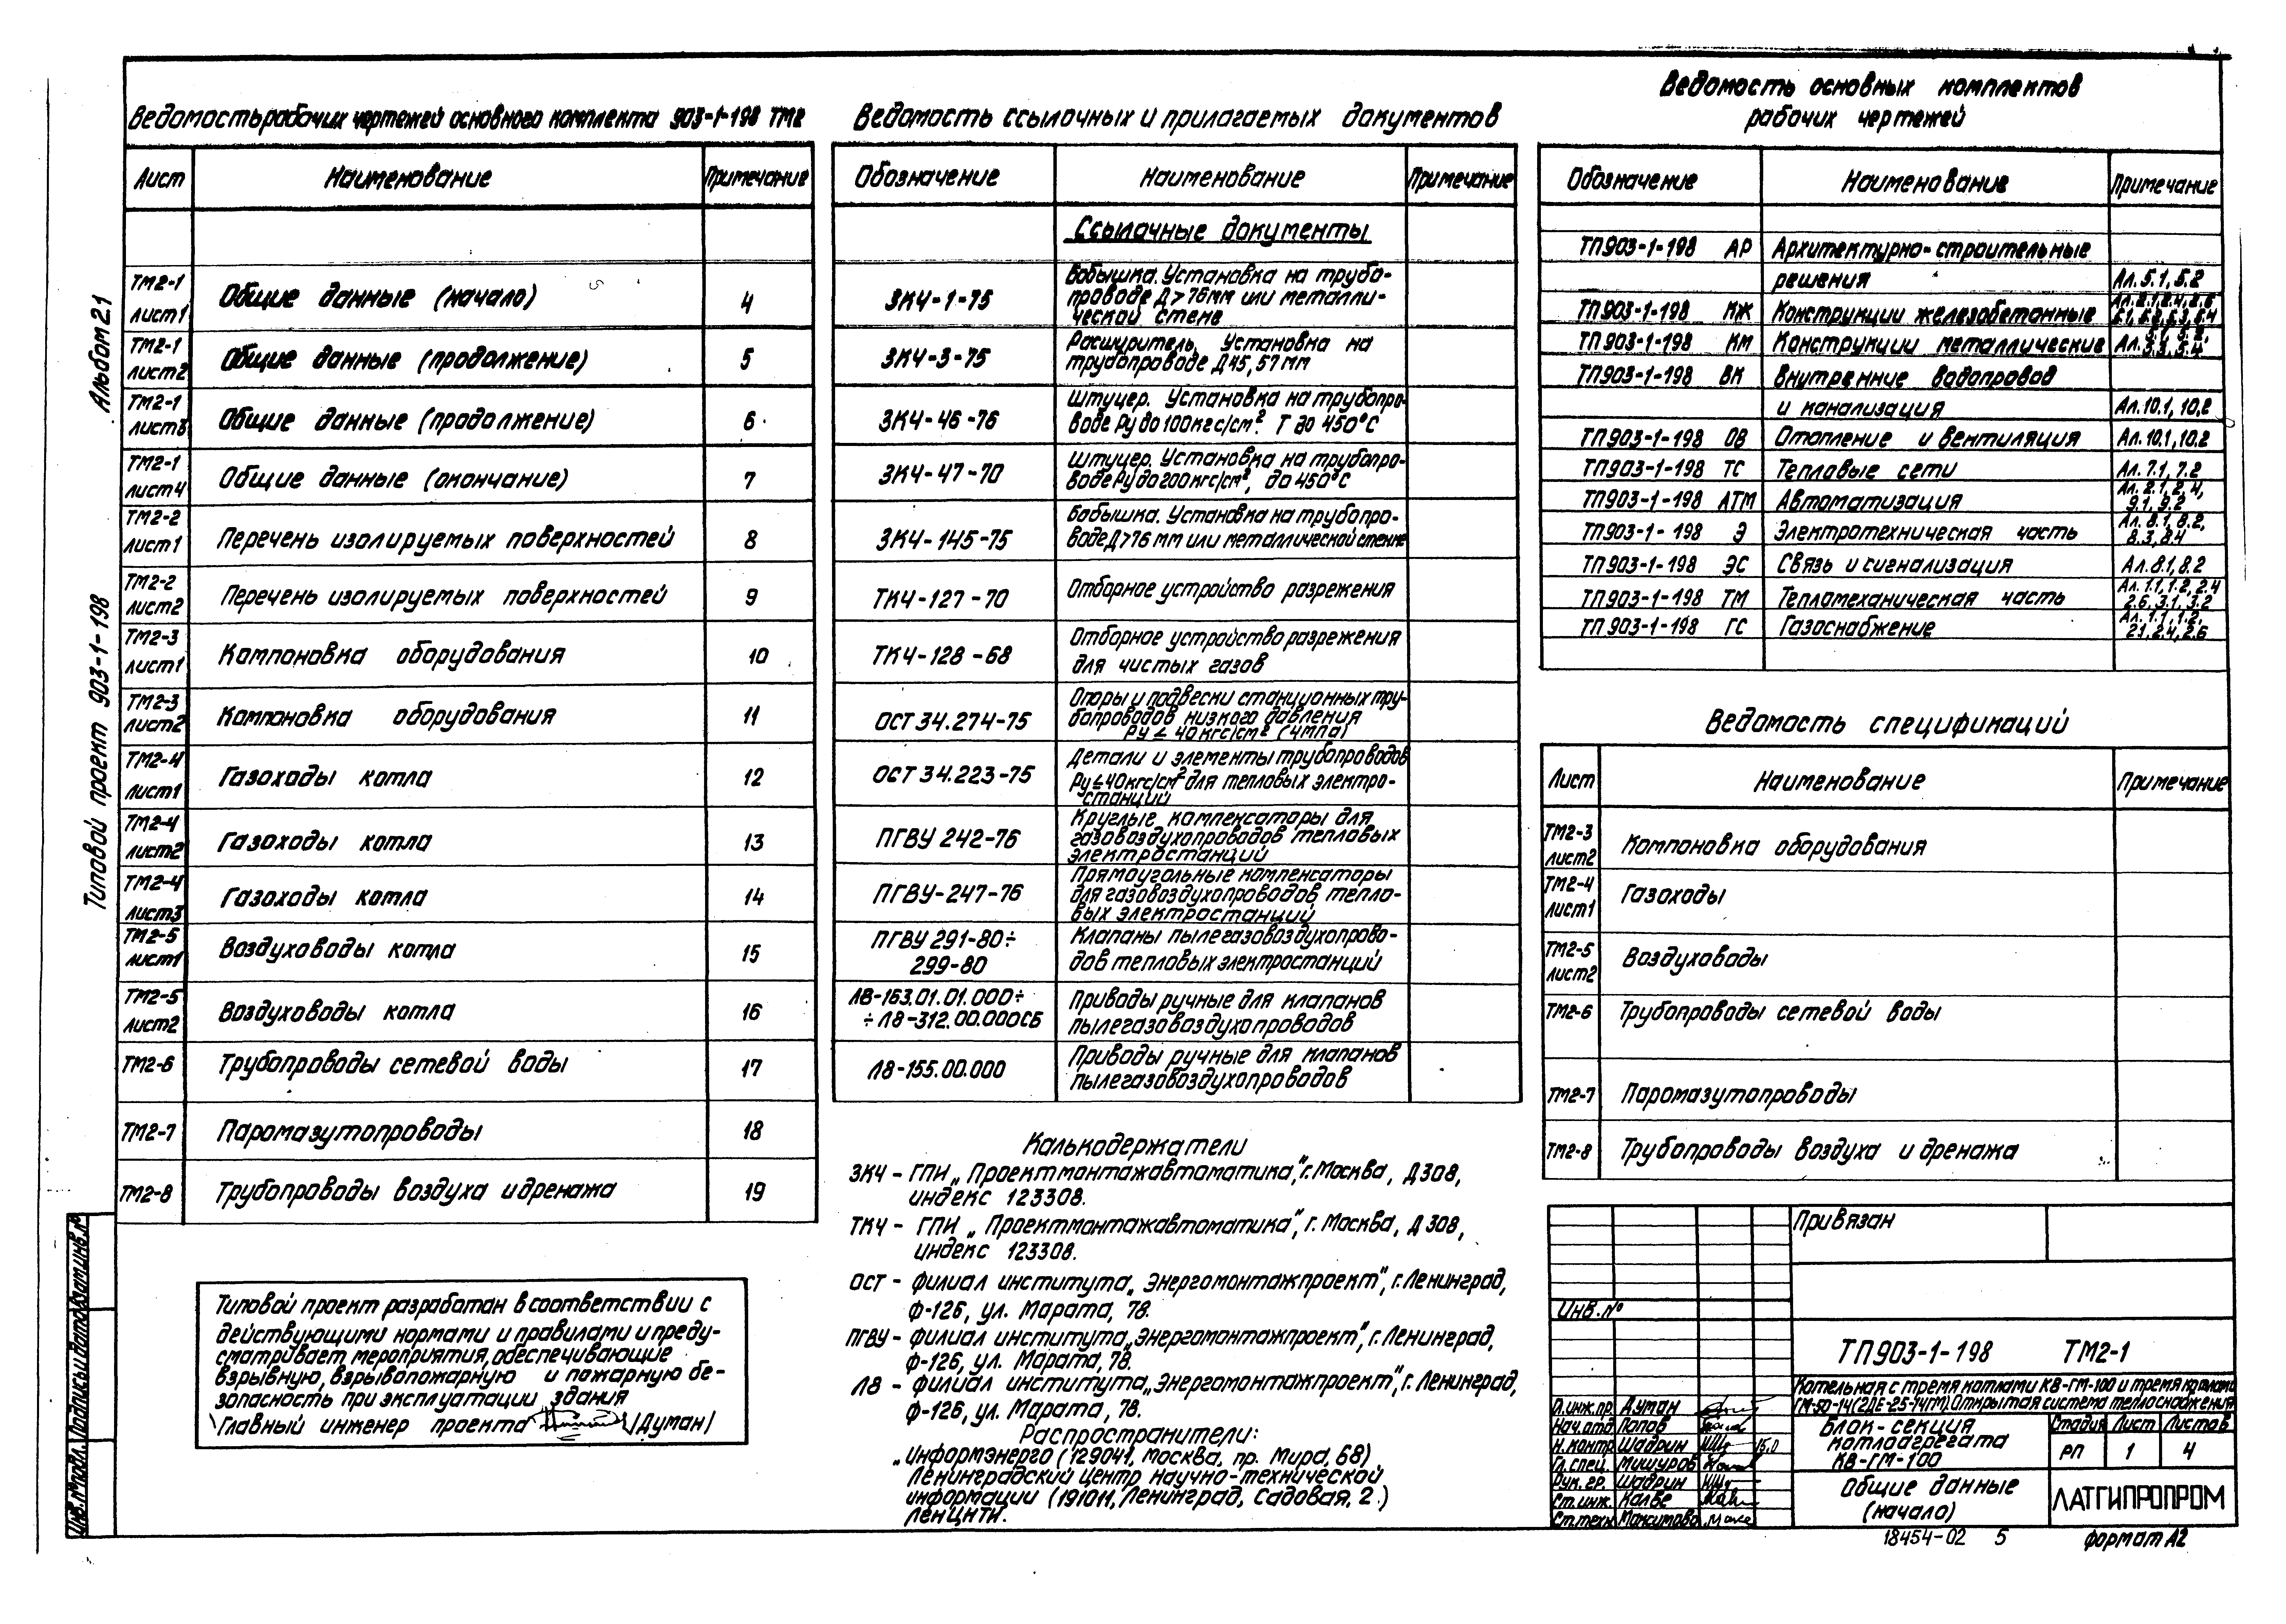 Ведомость рабочих чертежей основного комплекта 903-1-198 ТМ2
Лист Наименование Примечание
ТМ2-1 лист1 Общие данные (начало) 4
ТМ2-1 лист2 Общие данные (продолжение) 5
ТМ2-1 лист3 Общие данные (продолжение) 6
ТМ2-1 лист4 Общие данные (окончание) 7
ТМ2-2 лист1 Перечень изолируемых поверхностей 8
ТМ2-2 лист2 Перечень изолируемых поверхностей 9
ТМ2-3 лист1 Компоновка оборудования 10
ТМ2-3 лист2 Компоновка оборудования 11
ТМ2-4 лист1 Газоходы котла 12
ТМ2-4 лист2 Газоходы котла 13
ТМ2-4 лист3 Газоходы котла 14
ТМ2-5 лист1 Воздуховоды котла 15
ТМ2-5 лист2 Воздуховоды котла 16
ТМ2-6 Трубопроводы сетевой воды 17
ТМ2-7 Паромазутопроводы 18
ТМ2-8 Трубопроводы воздуха и дренажа 19
Типовой проект разработан в соответствии с
действующими нормами и правилами и преду-
сматривает мероприятия, обеспечивающие
взрывную, взрывопожарную и пожарную бе-
зопасность при эксплуатации здания
Главный инженер проекта /Думан/
Ведомость ссылочных и прилагаемых документов
Обозначение Наименование Примечание
Ссылочные документы
ЗК4-1-75 Бобышка. Установка на трубо-
проводе Д>76мм или металли-
ческой стене
ЗК4-3-75 Расширитель. Установка на
трубопроводе Д45, 57 мм
ЗК4-46-76 Штуцер. Установка на трубопро-
воде Ру до 100кгс/см². Т до 450°С
ЗК4-47-70 Штуцер. Установка на трубопро-
воде Ру до 200кгс/см², до 450°С
ЗК4-145-75 Бобышка. Установка на трубопро-
воде Д>76 мм или металлической стенке
ТК4-127-70 Отборное устройство разрежения
ТК4-128-68 Отборное устройство разрежения
для чистых газов
ОСТ 34.274-75 Опоры и подвески станционных тру-
бопроводов низкого давления
Ру ≤ 40кгс/см² (4МПа)
ОСТ 34.223-75 Детали и элементы трубопроводов
Ру≤40кгс/см² для тепловых электро-
станций
ПГВУ 242-76 Круглые компенсаторы для
газовоздухопроводов тепловых
электростанций
ПГВУ-247-76 Прямоугольные компенсаторы
для газовоздухопроводов тепло-
вых электростанций
ПГВУ 291-80÷ Клапаны пылегазовоздухопрово-
299-80 дов тепловых электростанций
Л8-163.01.01.000÷ Приводы ручные для клапанов
÷Л8-312.00.000СБ пылегазовоздухопроводов
Л8-155.00.000 Приводы ручные для клапанов
пылегазовоздухопроводов
Калькодержатели
ЗК4 - ГПИ „Проектмонтажавтоматика", г. Москва, Д308,
индекс 123308.
ТК4 - ГПИ „Проектмонтажавтоматика", г. Москва, Д308,
индекс 123308.
ОСТ - филиал института „Энергомонтажпроект", г. Ленинград,
Ф-126, ул. Марата, 78.
ПГВУ - филиал института „Энергомонтажпроект", г. Ленинград,
Ф-126, ул. Марата, 78.
Л8 - филиал института „Энергомонтажпроект", г. Ленинград,
Ф-126, ул. Марата, 78.
Распространители:
„Информэнерго (129041, Москва, пр. Мира, 68)
Ленинградский центр научно-технической
информации (191011, Ленинград, Садовая, 2.)
ЛенЦНТИ.
Ведомость основных комплектов
рабочих чертежей
Обозначение Наименование Примечание
ТП903-1-198 АР Архитектурно-строительные
решения Ал. 5.1, 5.2
ТП903-1-198 КЖ Конструкции железобетонные
ТП903-1-198 КМ Конструкции металлические
ТП903-1-198 ВК Внутренние водопровод
и канализация Ал. 10.1, 10.2
ТП903-1-198 ОВ Отопление и вентиляция Ал. 10.1, 10.2
ТП903-1-198 ТС Тепловые сети Ал. 7.1, 7.2
ТП903-1-198 АТМ Автоматизация Ал. 2.1, 2.4,
9.1, 9.2
ТП903-1-198 Э Электротехническая часть Ал. 8.1, 8.2,
8.3, 8.4
ТП903-1-198 ЭС Связь и сигнализация Ал. 8.1, 8.2
ТП903-1-198 ТМ Тепломеханическая часть Ал. 1.1, 1.2, 2.4
2.6, 3.1, 3.2
ТП903-1-198 ГС Газоснабжение Ал. 1.1, 1.2,
2.1, 2.4, 2.6
Ведомость спецификаций
Лист Наименование Примечание
ТМ2-3 лист2 Компоновка оборудования
ТМ2-4 лист1 Газоходы
ТМ2-5 лист2 Воздуховоды
ТМ2-6 Трубопроводы сетевой воды
ТМ2-7 Паромазутопроводы
ТМ2-8 Трубопроводы воздуха и дренажа
Привязан
Инв.№
ТП903-1-198 ТМ2-1
Котельная с тремя котлами КВ-ГМ-100 и тремя котлами
ГМ-50-14(2ДЕ-25-14ГМ). Открытая система теплоснабжения
Гл.инж.пр. Думан
Нач.отд. Попов
Н.контр. Шадрин
Гл.спец. Мишуров
Рук.гр. Шадрин
Ст.инж. Калве
Ст.техн. Максимова
Блок-секция
котлоагрегата
КВ-ГМ-100
Стадия Лист Листов
РП 1 4
Общие данные
(начало)
ЛАТГИПРОПРОМ
18454-02 5 Формат А2
Типовой проект 903-1-198 Альбом 2.1
Инв.№ подл. Подпись и дата Взам.инв.№